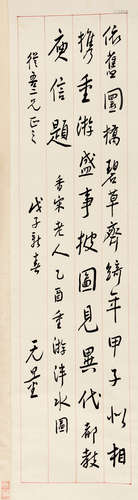 依舊圜橋碧草齊綺年甲子似相
携重游盛事披圖見異代都教
庾信題 香宋老人乙酉重游泮水圖
二兄正之 戊子新喜 无量